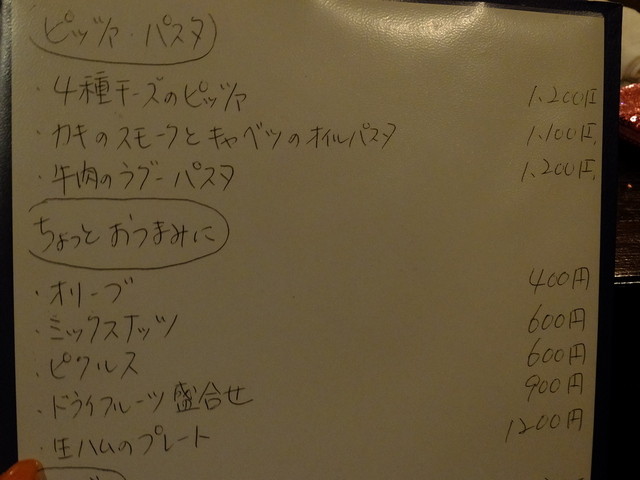 ピッツァ・パスタ
・4種チーズのピッツァ 1,200円
・カキのスモークとキャベツのオイルパスタ 1,100円
・牛肉のラグーパスタ 1,200円
ちょっと おつまみに
・オリーブ 400円
・ミックスナッツ 600円
・ピクルス 600円
・ドライフルーツ 盛合せ 900円
・生ハムのプレート 1200円